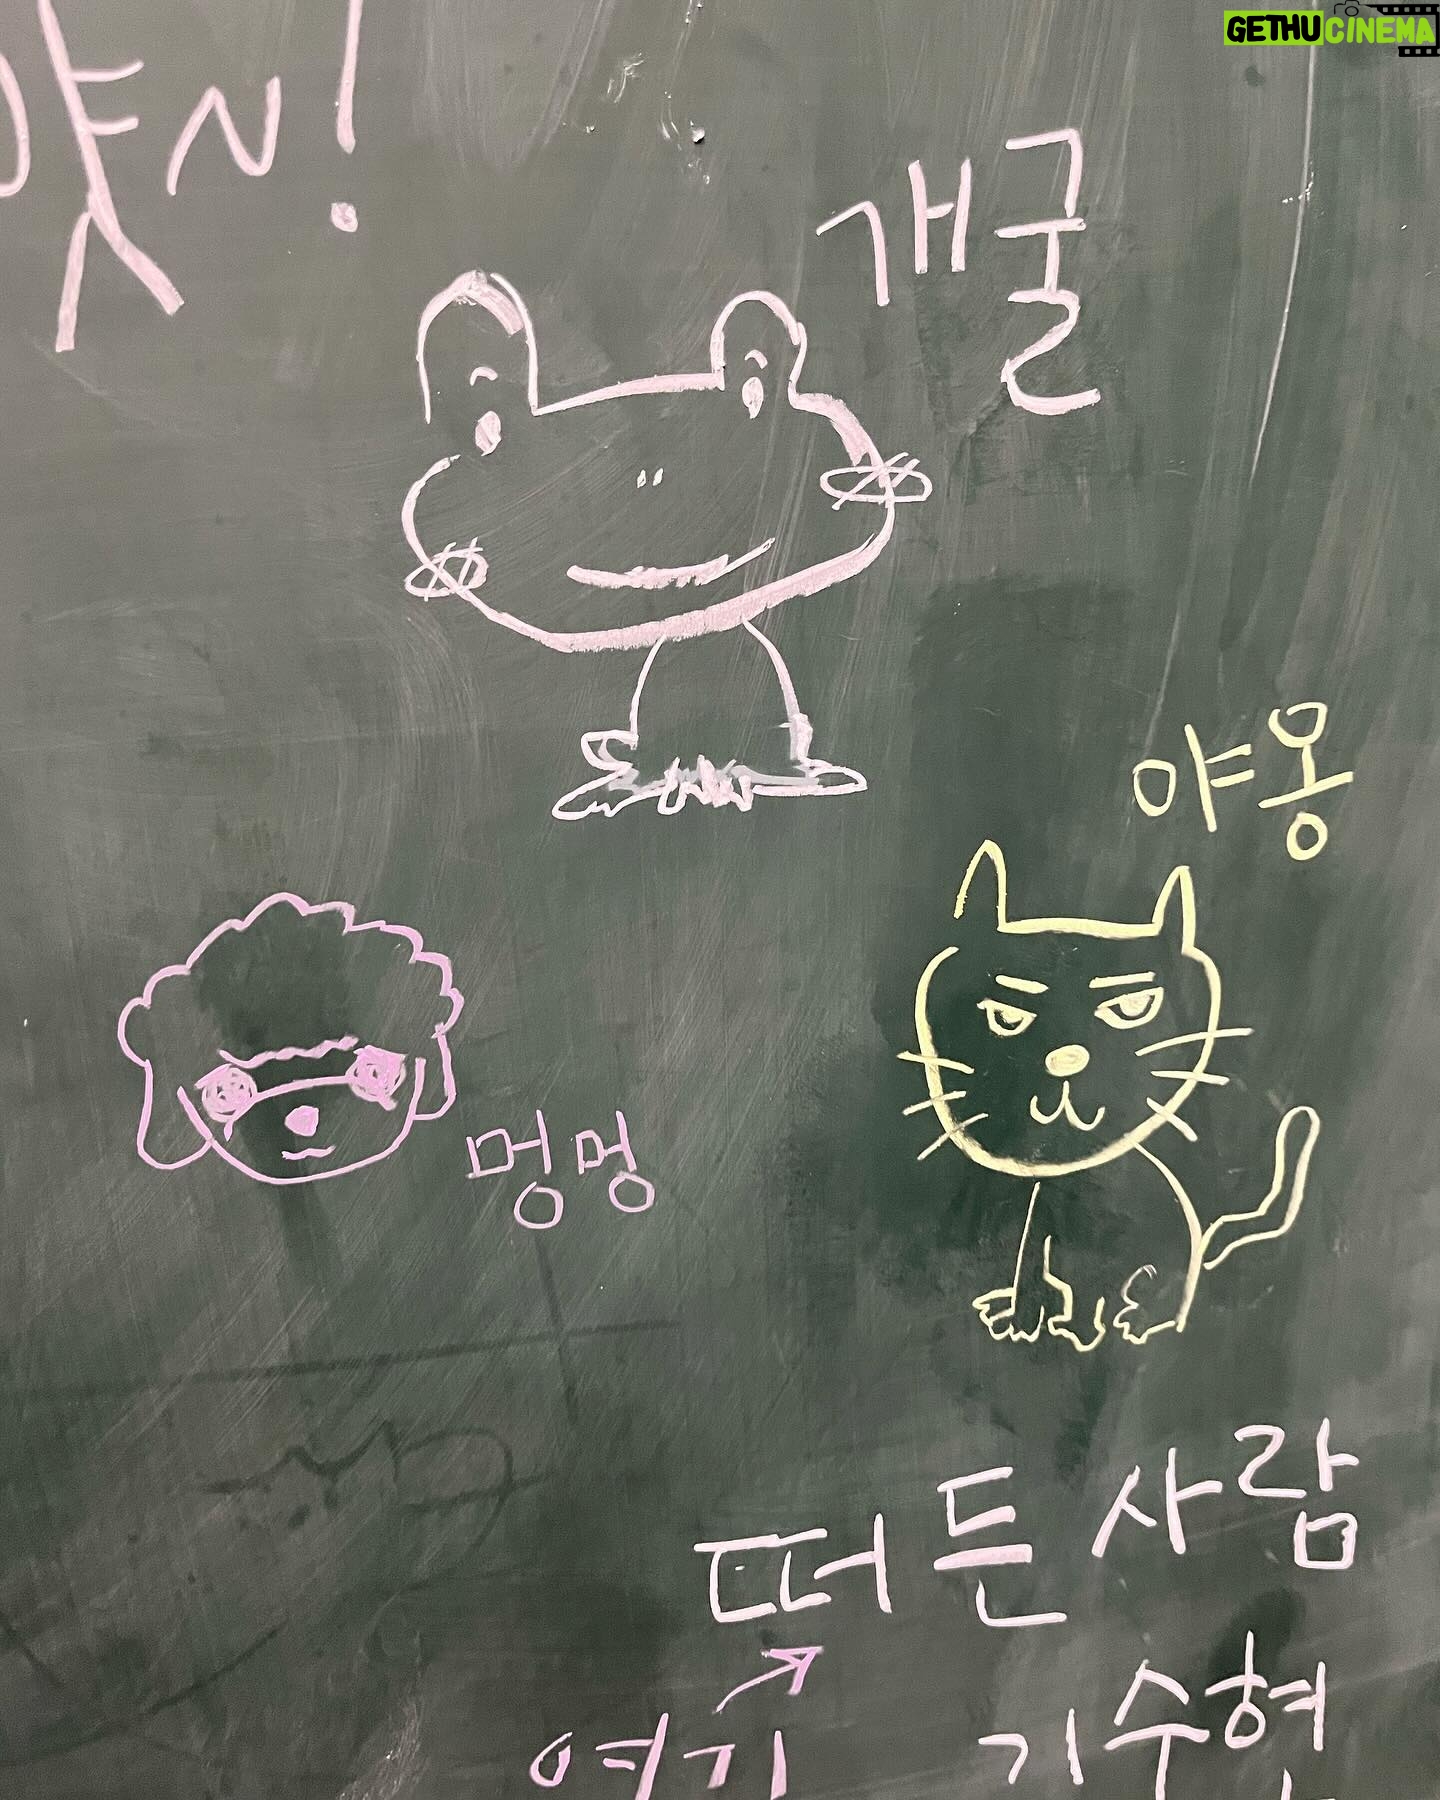 GETHUCINEMA
얏~!
개굴
야옹
멍멍
떠든 사람
여기
기수현